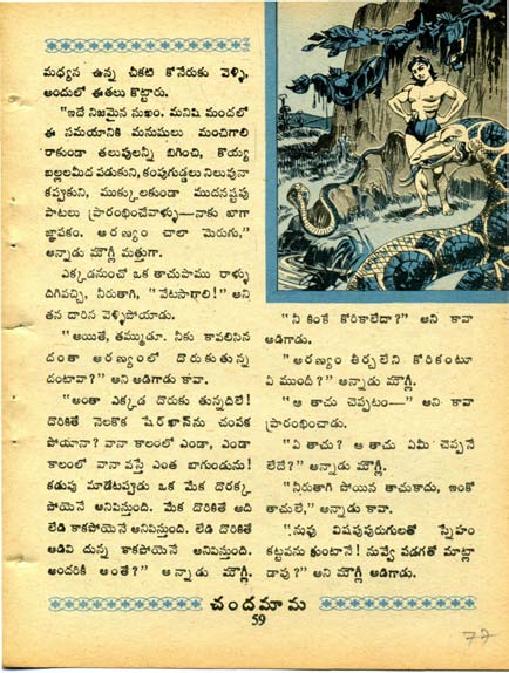 మధ్యన ఉన్న చీకటి కోనేరుకు వెళ్ళి,
అందులో ఈతలు కొట్టారు.
"ఇదే నిజమైన సుఖం. మనిషి మందలో
ఈ సమయానికి మనుషులు మంచిగాలి
రాకుండా తలుపులన్నీ బిగించి, కొయ్య
బల్లలమీద పడుకుని, కంపుగుడ్డలు నిలువునా
కప్పుకుని, ముక్కులకుండా ముదనష్టపు
పాటలు ప్రారంభించేవాళ్ళు—నాకు బాగా
జ్ఞాపకం. అరణ్యం చాలా మెరుగు,"
అన్నాడు మౌగ్లీ మత్తుగా.
ఎక్కడనుంచో ఒక తాచుపాము రాళ్ళు
దిగివచ్చి, నీరుతాగి, "వేటసాగాలి!" అని
తన దారిన వెళ్ళిపోయాడు.
"అయితే, తమ్ముడూ. నీకు కావలిసిన
దంతా అరణ్యంలో దొరుకుతున్న
దంటావా?" అని అడిగాడు కావా.
"అంతా ఎక్కడ దొరుకు తున్నదిలే!
దొరికితే నెలకొక షేర్‌ఖాన్‌ను చంపేక
పోయానా? వానా కాలంలో ఎండా, ఎండా
కాలంలో వానా వస్తే ఎంత బాగుండును!
కడుపు మాడేటప్పుడు ఒక మేక దొరక్క
పోయెనే అనిపిస్తుంది. మేక దొరికితే అది
లేడి కాకపోయెనే అనిపిస్తుంది. లేడి దొరికితే
అడివి దున్న కాకపోయెనే అనిపిస్తుంది.
అందరికీ అంతే?" అన్నాడు మౌగ్లీ.
"నీ కింకే కోరికాలేదా?" అని కావా
అడిగాడు.
"అరణ్యం తీర్చలేని కోరికంటూ
ఏ ముందీ?" అన్నాడు మౌగ్లీ.
"ఆ తాచు చెప్పటం—" అని కావా
ప్రారంభించాడు.
"ఏ తాచు? ఆ తాచు ఏమీ చెప్పనే
లేదే?" అన్నాడు మౌగ్లీ.
"నీరుతాగి పోయిన తాచుకాదు, ఇంకో
తాచులే," అన్నాడు కావా.
"నువు విషపుపురుగులతో స్నేహం
కట్టవను కుంటానే! నువ్వే పడగతో మాట్లా
డావు?" అని మౌగ్లీ అడిగాడు.
చందమామ
59
77